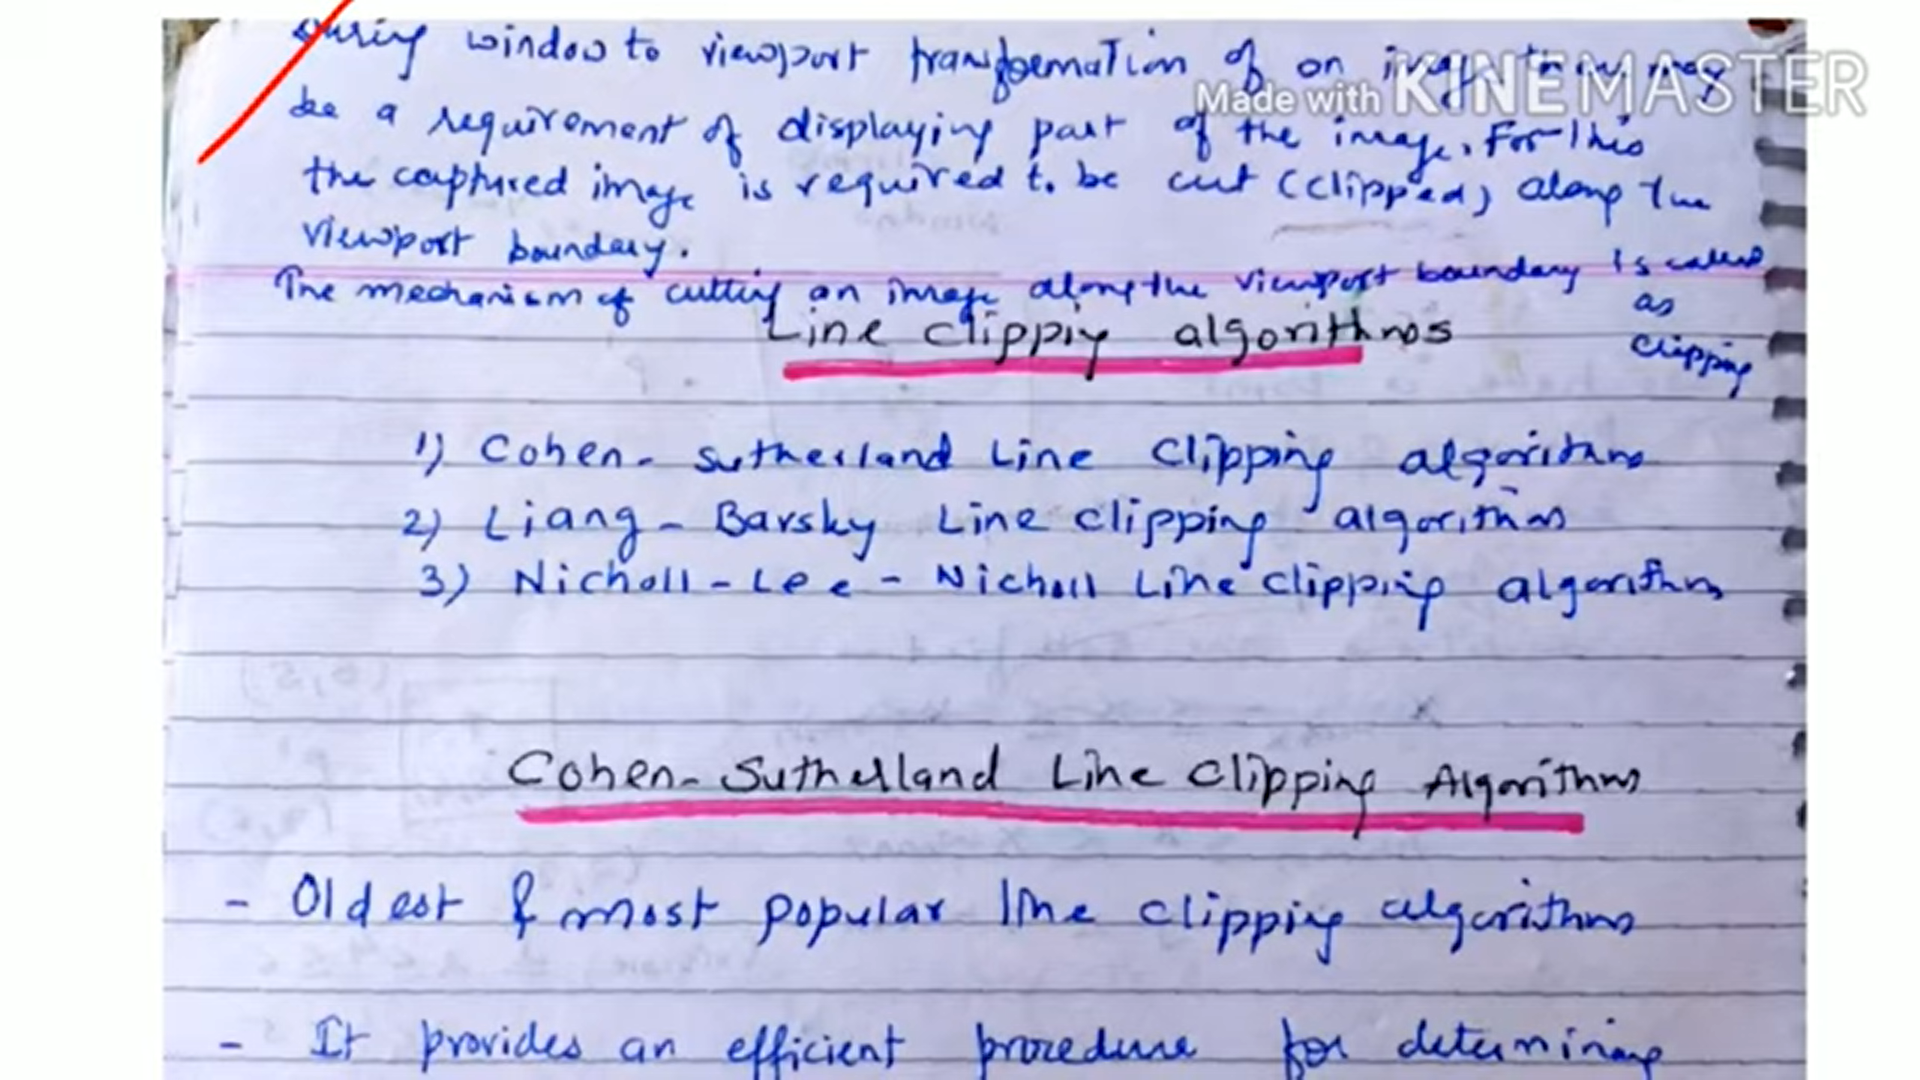 During window to viewport transformation of an image there may
be a requirement of displaying part of the image. For this
the captured image is required to be cut (clipped) along the
viewport boundary.
The mechanism of cutting an image along the viewport boundary is called
as
clipping
Made with KINEMASTER
Line clipping algorithms
1) Cohen - Sutherland Line Clipping algorithm
2) Liang - Barsky Line clipping algorithm
3) Nicholl - Lee - Nicholl Line clipping algorithm
Cohen - Sutherland Line Clipping Algorithm
- Oldest & most popular line clipping algorithm
- It provides an efficient procedure for determining